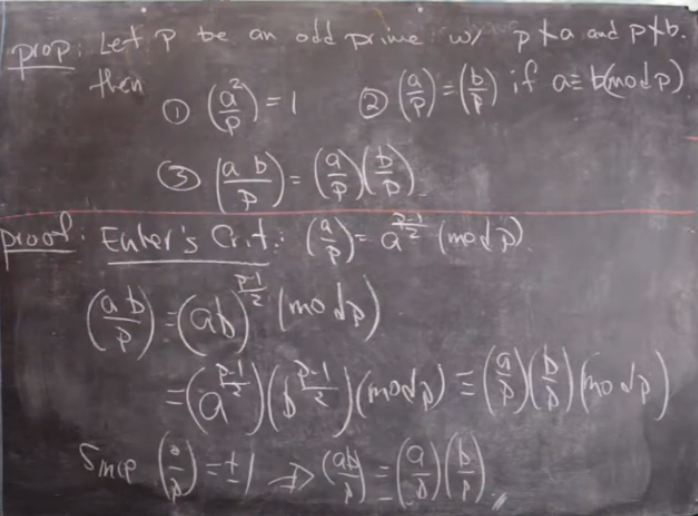 prop: Let p be an odd prime w/ p∤a and p∤b.
then ① (a²/p) = 1 ② (a/p) = (b/p) if a ≡ b (mod p).
③ (ab/p) = (a/p)(b/p).
proof: Euler's Crit.: (a/p) = a^((p-1)/2) (mod p).
(ab/p) = (ab)^((p-1)/2) (mod p)
= (a^((p-1)/2))(b^((p-1)/2)) (mod p) ≡ (a/p)(b/p) (mod p)
Since (·/p) = ±1 ⇒ (ab/p) = (a/p)(b/p).